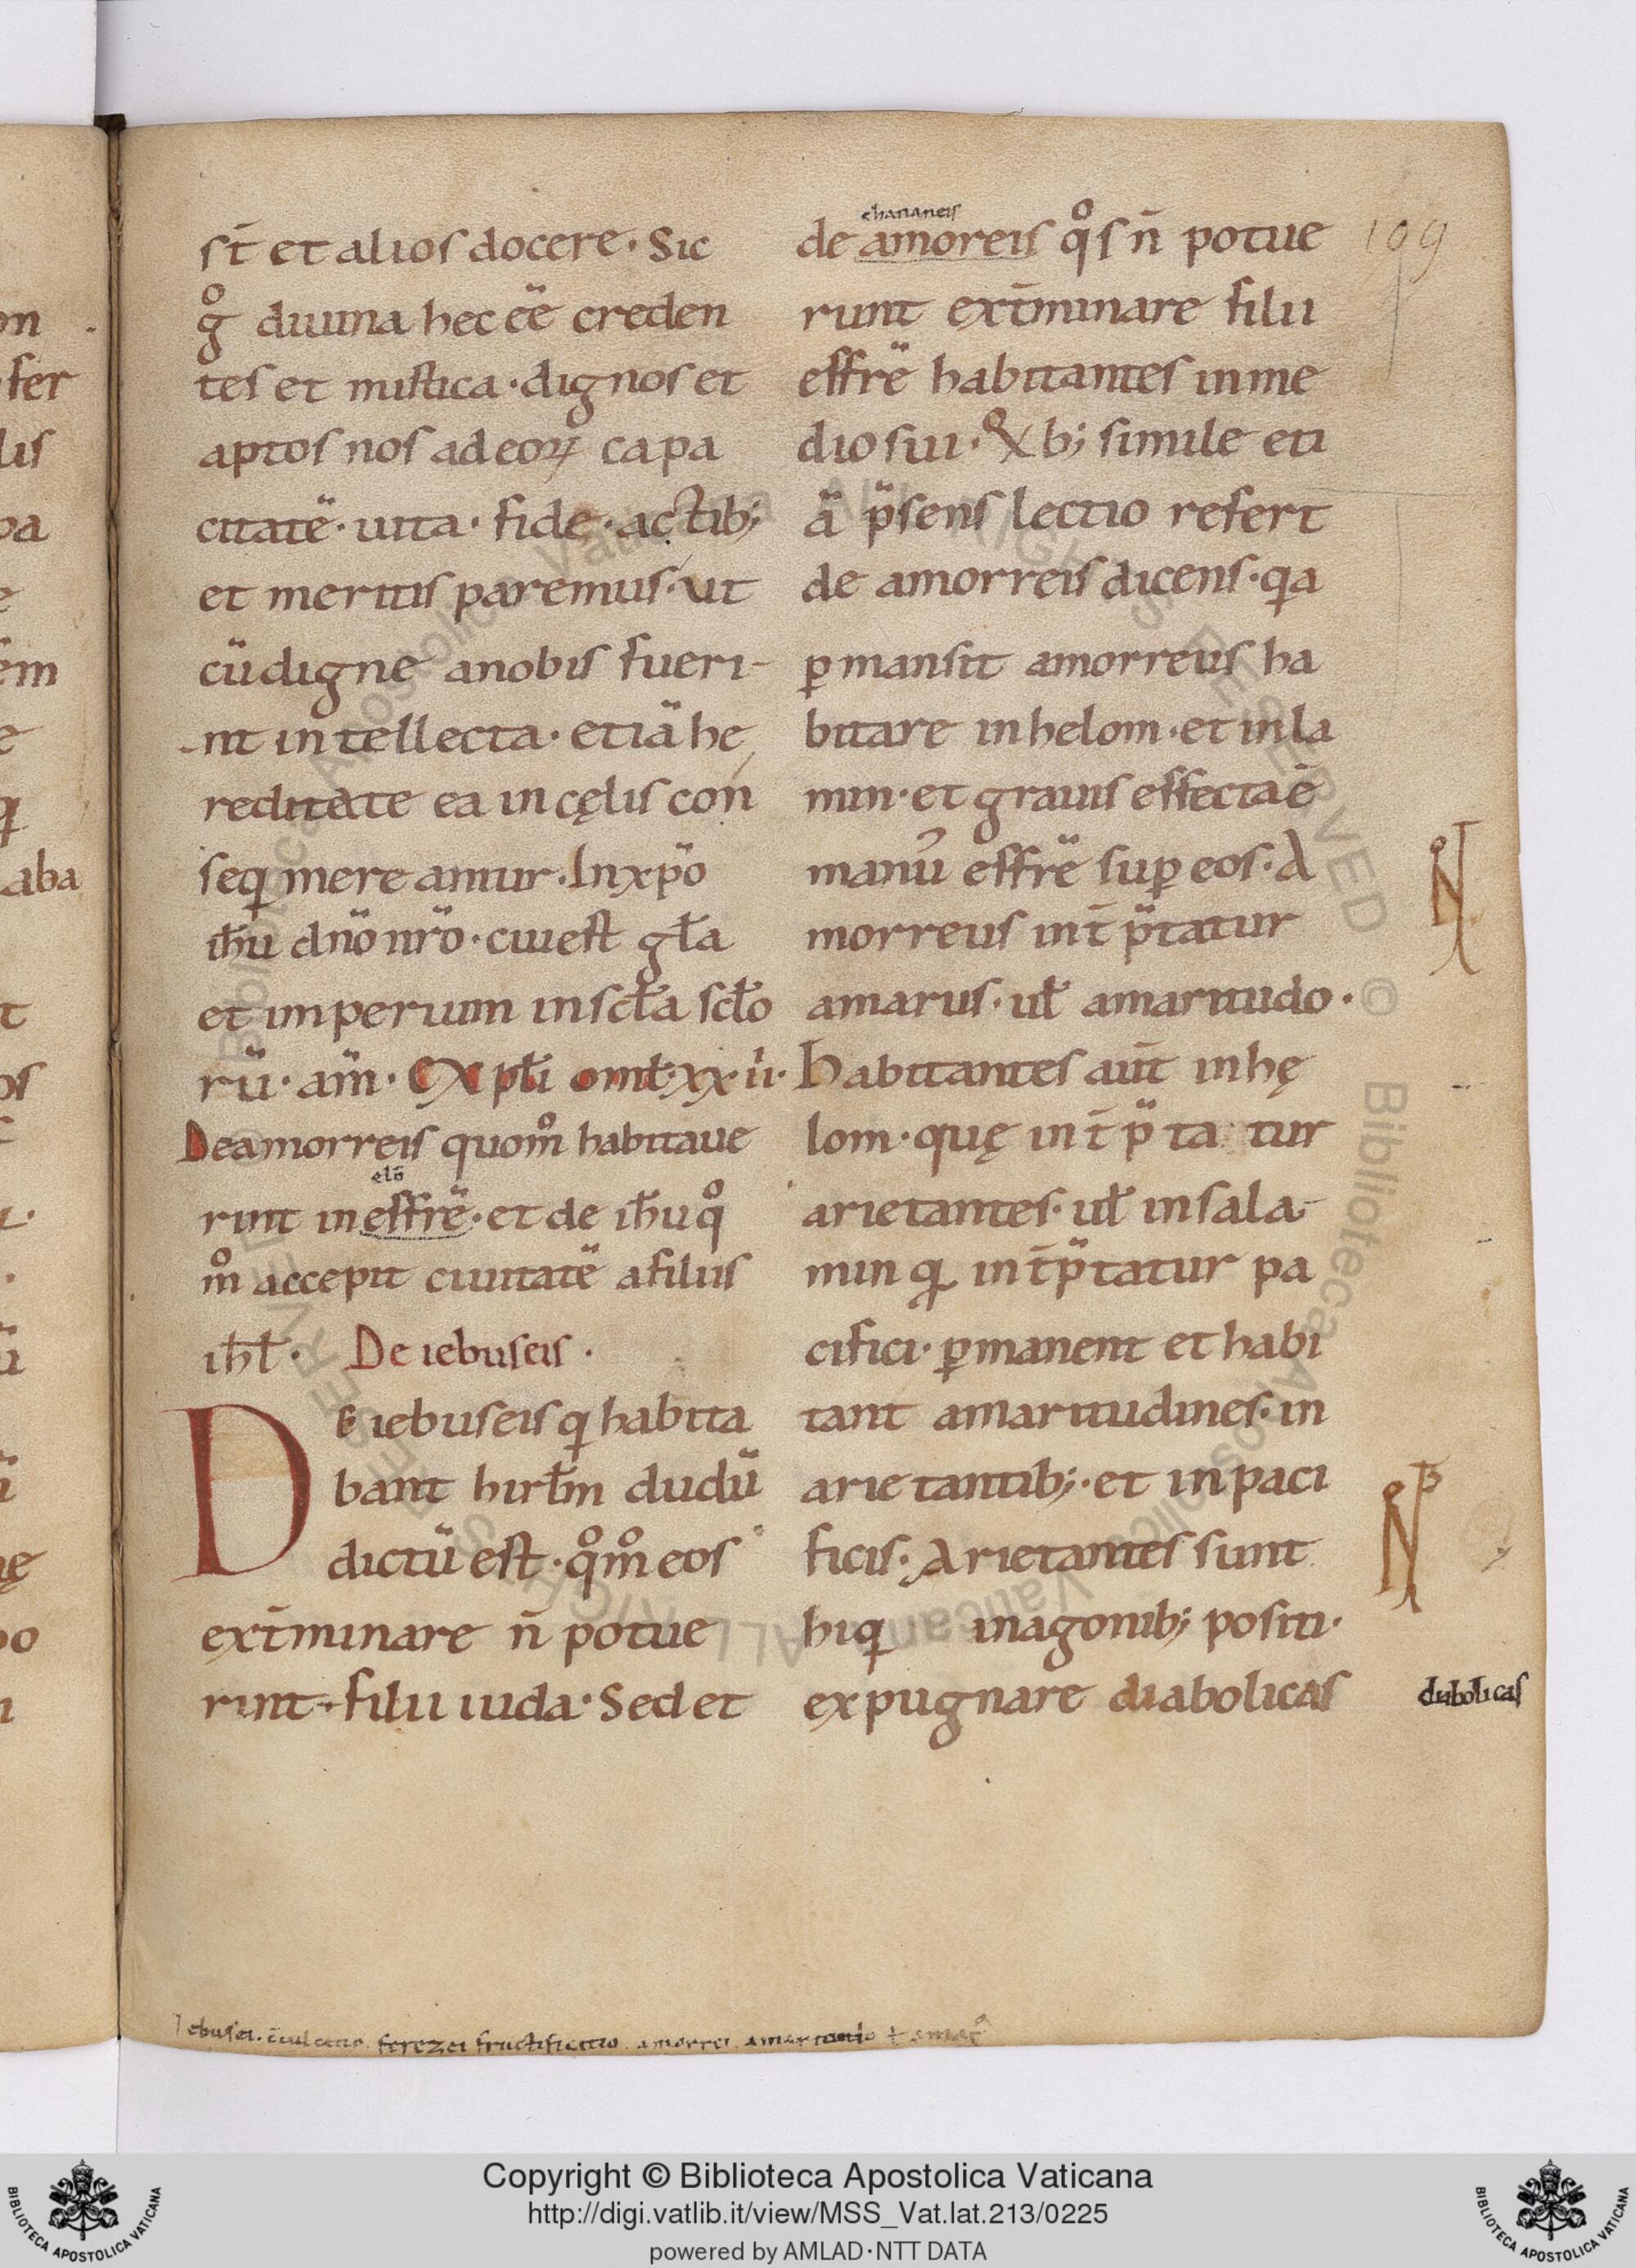 st̄ et alios docere. Sic
g̊ diuina hec eē creden
tes et mistica. dignos et
aptos nos ad eoꝝ capa
citatē. uita. fide. actib;
et meritis paremus. ut
cū digne a nobis fueri-
-nt intellecta. etiā he
reditate ea in cęlis con
seq mereamur. In xp̄o
ih̄u dn̄o nr̄o. cui est gl̄a
et imperium in scl̄a scl̄o
rū. am̄. Expl̄i oml̄. xx.ii.
De amorreis quom̊ habitaue
elō
runt in effrē. et de ih̄u q̊
m̊ accepit ciuitatē a filiis
ih̄l. De iebuseis.
De iebuseis q habita
bant hirl̄m dudū
dictū est. q̊m̊ eos
ext̄minare n̄ potue
runt. filii iuda. Sed et
chananeis
de amoreis q̊s n̄ potue
runt ext̄minare filii
effrē habitantes in me
dio sui. Qͥb; simile eti
ā p̄sens lectio refert
de amorreis dicens. qa
ꝑmansit amorreus ha
bitare in helom. et in la
min. et grauis effecta ē
manus effrē suꝑ eos. A
morreus int̄p̄tatur
amarus. ul̄ amaritudo.
Habitantes aut̄ in hę
lom. quę int̄p̄tatur
arietantes. ul̄ in sala-
min q int̄p̄tatur pa
cifici. ꝑmanent et habi
tant amaritudines. in
arietantib;. et in paci
ficis. Arietantes sunt
hi q in agonib; positi.
expugnare diabolicas
199
diabolicas
Iebusei. ferezei fructificatio. amorrei
Copyright © Biblioteca Apostolica Vaticana
http://digi.vatlib.it/view/MSS_Vat.lat.213/0225
powered by AMLAD·NTT DATA
BIBLIOTECA APOSTOLICA VATICANA
BIBLIOTECA APOSTOLICA VATICANA